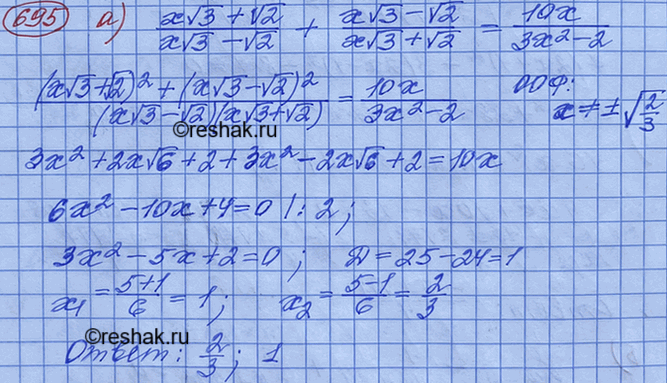 695 а) (x√3+√2)/(x√3−√2) + (x√3−√2)/(x√3+√2) = 10x/(3x²−2)
((x√3+√2)²+(x√3−√2)²)/((x√3−√2)(x√3+√2)) = 10x/(3x²−2) ООФ:
x≠±√(2/3)
©reshak.ru
3x²+2x√6+2+3x²−2x√6+2=10x
6x²−10x+4=0 |:2;
3x²−5x+2=0; Д=25−24=1
x₁=(5+1)/6=1; x₂=(5−1)/6=2/3
©reshak.ru
Ответ: 2/3; 1